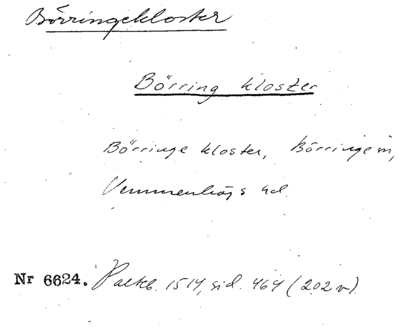 Börringekloster
Börring kloster
Börringe kloster, Börringe sn,
Vemmenhögs hd.
Nr 6624. Palteb. 1514, sid. 464 (202 v).